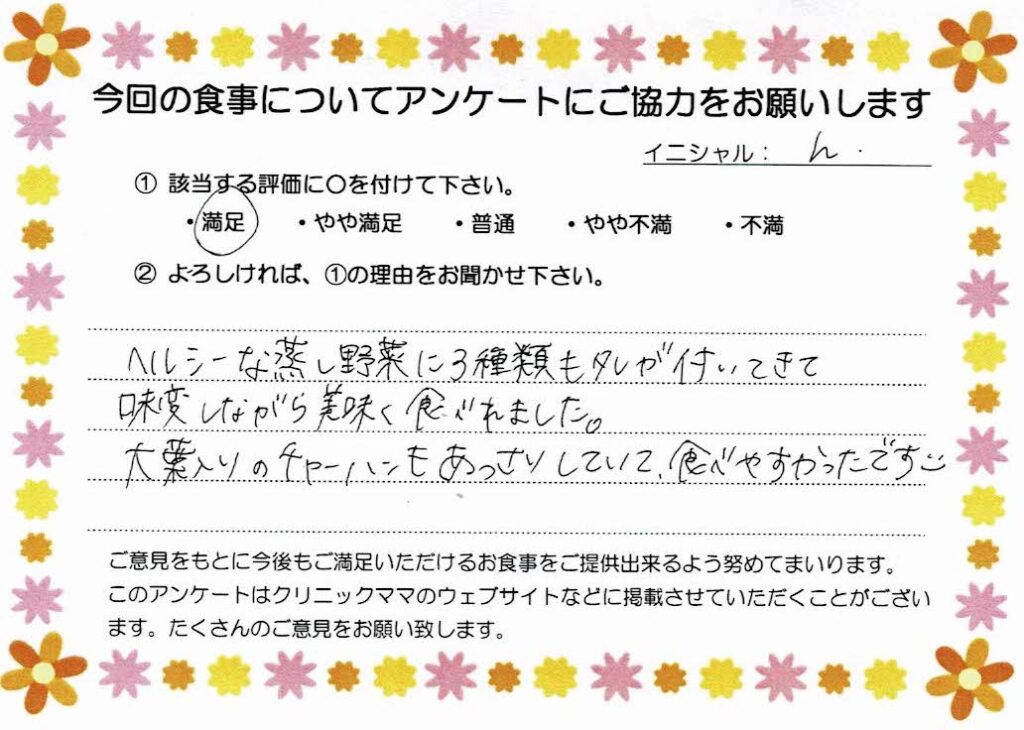 今回の食事についてアンケートにご協力をお願いします
イニシャル： ん.
① 該当する評価に〇を付けて下さい。
・満足 ・やや満足 ・普通 ・やや不満 ・不満
② よろしければ、①の理由をお聞かせ下さい。
ヘルシーな蒸し野菜に3種類もタレが付いてきて
味変しながら美味く食べれました。
大葉入りのチャーハンもあっさりしていて、食べやすかったです
ご意見をもとに今後もご満足いただけるお食事をご提供出来るよう努めてまいります。
このアンケートはクリニックママのウェブサイトなどに掲載させていただくことがござい
ます。たくさんのご意見をお願い致します。